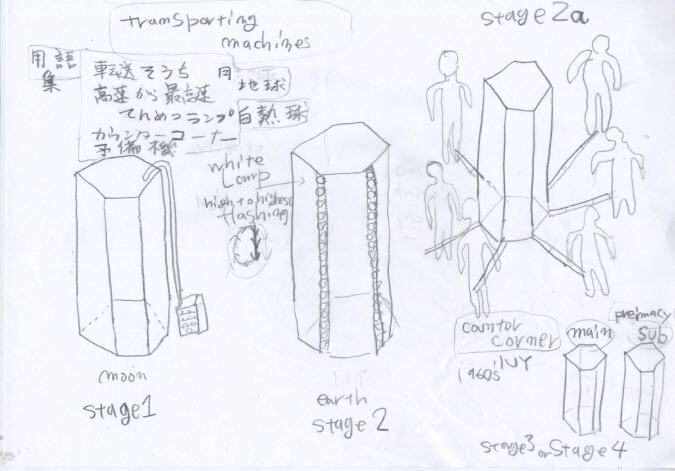 transporting
machines
用語
集
転送そうち
月
地球
高速から最高速
てんめつランプ
白熱球
カウンターコーナー
予備機
white
Lamp
high to highest
flashing
moon
stage1
earth
stage 2
stage2a
counter
corner
1960s' NY
main
sub
stage3 or Stage 4